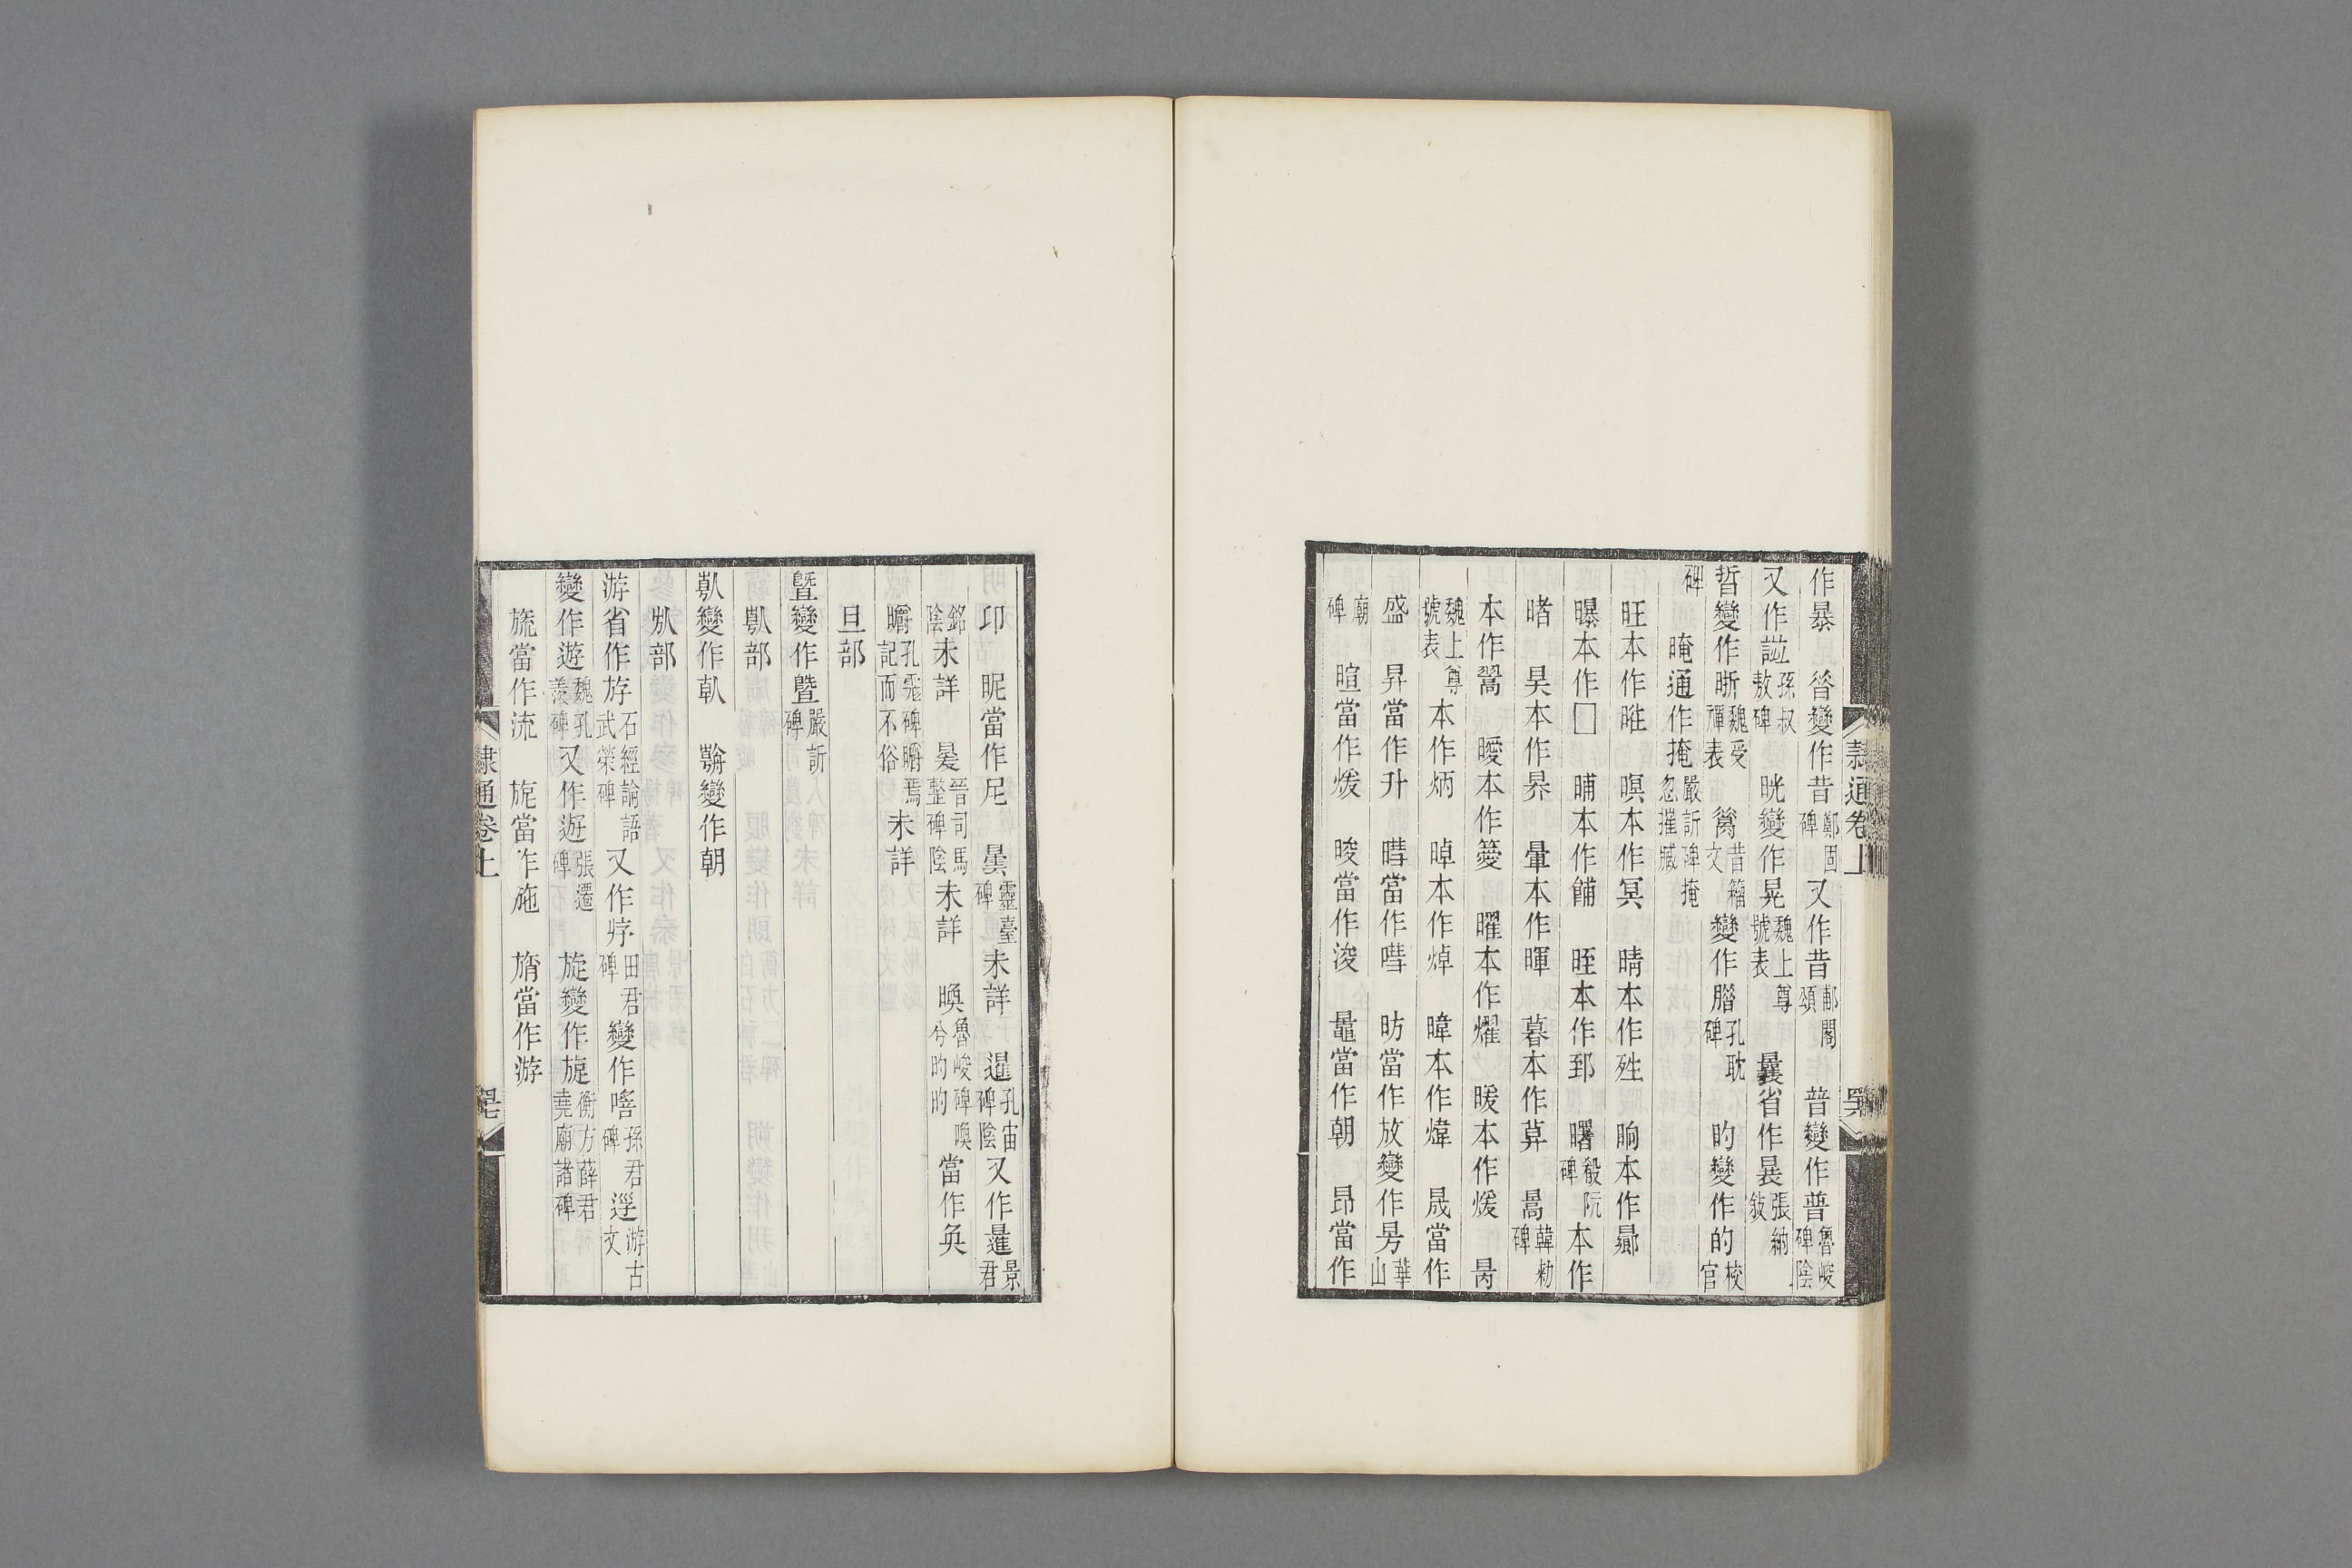 作暴　㫺變作昔鄭固碑又作昔郙閣頌　暜變作普魯峻碑陰
又作𧧼孫叔敖碑　晄變作晃魏上尊號表　曩省作曩張納敍
晳變作晣魏受禪表　昔籀文變作腊孔耽碑　旳變作的校官
碑　晻通作掩嚴訢碑掩忽摧臧
旺本作暀　暝本作冥　晴本作夝　晌本作曏
曝本作□　晡本作餔　晊本作郅　曙殽阮碑本作
睹　昊本作昦　暈本作暉　暮本作莫　暠韓勑碑
本作翯　曖本作薆　曜本作燿　暖本作煖　昺
魏上尊號表本作炳　晫本作焯　暐本作煒　晟當作
盛　昇當作升　當作嘒　昉當作放變作昘華山
廟碑　暄當作煖　晙當作浚　鼂當作朝　昂當作
卬　昵當作尼　曇靈臺碑未詳　暹孔宙碑陰又作暹景君
銘陰未詳　晷晉司馬整碑陰未詳　㬇魯峻碑㬇兮旳旳當作奐
孔霓碑焉記而不俗未詳
旦部
曁變作暨嚴訢碑
倝部
倝變作𠦝　變作朝
㫃部
游省作斿石經論語武榮碑又作㳺田君碑變作嘻孫君碑　逕游古文
變作遊魏孔羨碑又作遊張遷碑　旋變作旋衡方薛君堯廟諸碑
旒當作流　旎當作施　㫋當作游
隸通卷上
隸通卷上